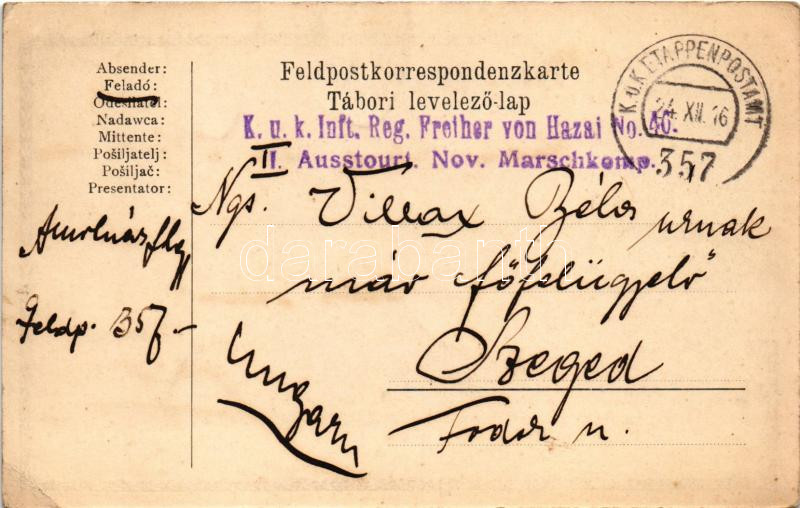 Absender:
Feladó:
Odesílatel:
Nadawca:
Mittente:
Pošiljatelj:
Pošiljač:
Presentator:
Feldpostkorrespondenzkarte
Tábori levelező-lap
K. u. k. Inft. Reg. Freiher von Hazai No. 46.
II. Ausstourt. Nov. Marschkomp.
K.u.K. ETAPPENPOSTAMT
24. XII. 16
357
Ngs. Villax Béla urnak
máv főfelügyelő
Szeged
Fodor u.
Ungarn
Feldp. 357
darabanth